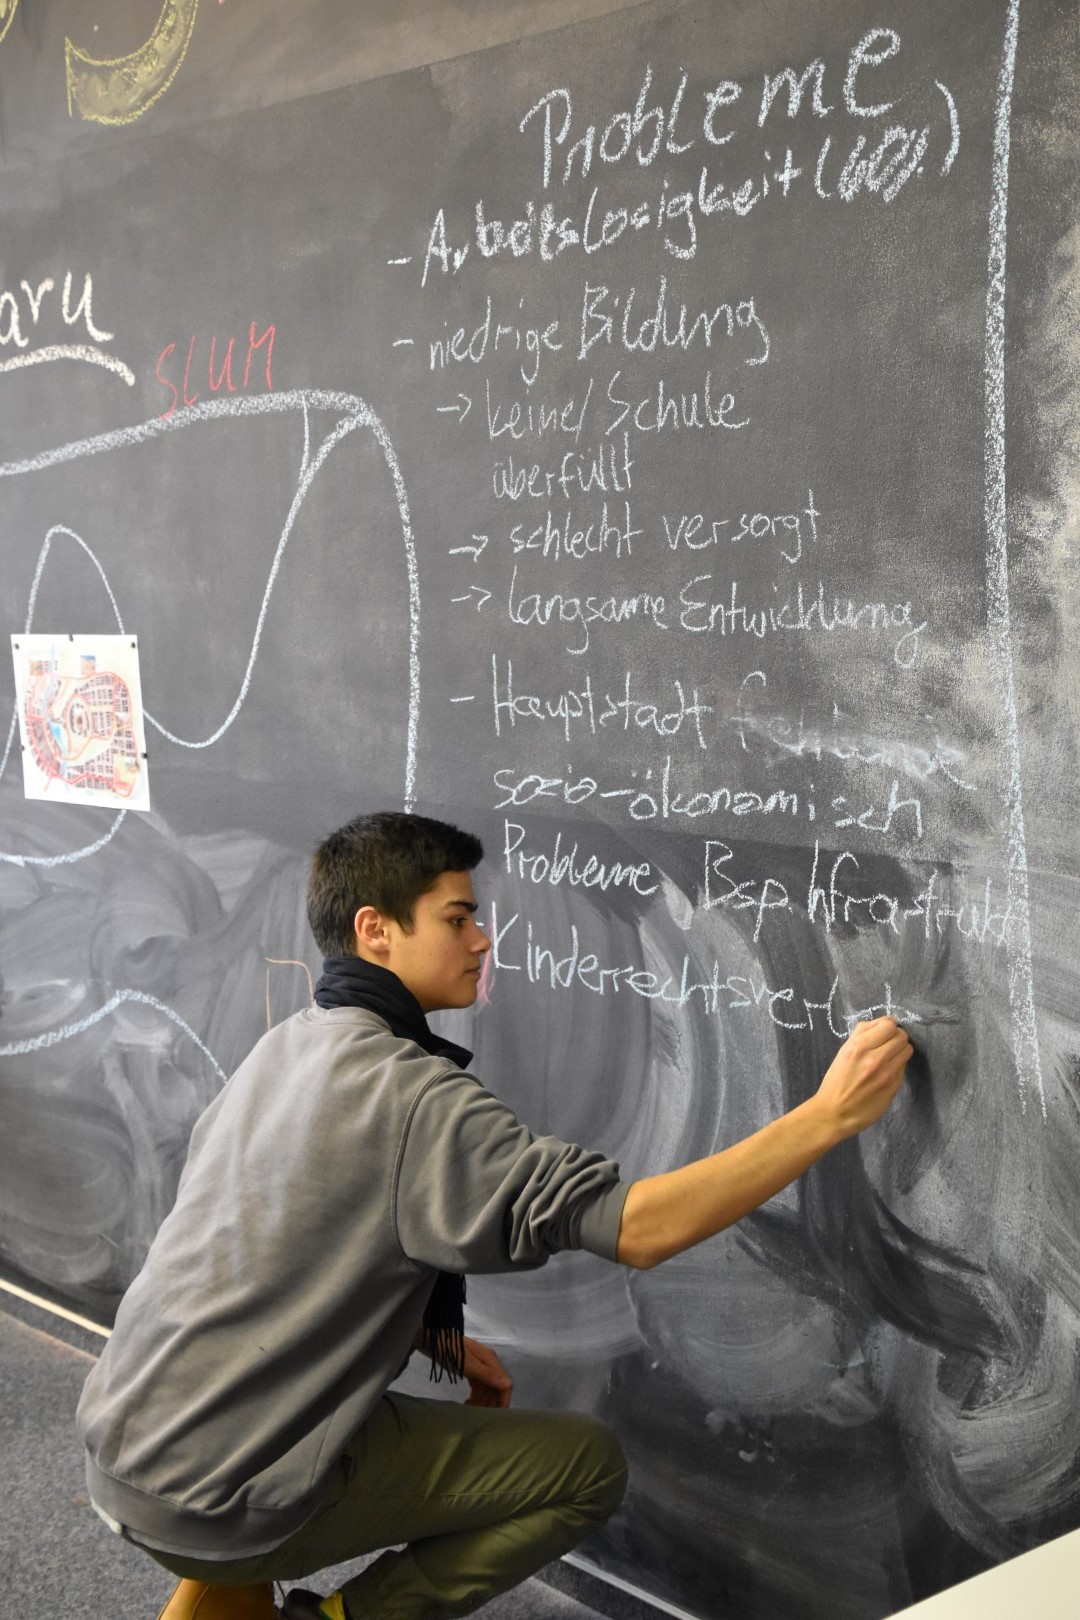 Probleme
- Arbeitslosigkeit (60%)
- niedrige Bildung
→ keine/Schule
überfüllt
→ schlecht versorgt
→ langsame Entwicklung
- Hauptstadt
sozio-ökonomisch
Probleme Bsp. Infrastrukt
Kinderrechtsverlet
aru
SLUM